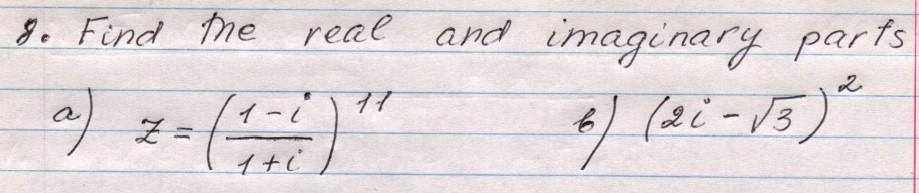 8. Find the real and imaginary parts
a) z = ((1-i)/(1+i))^11 b) (2i - √3)^2